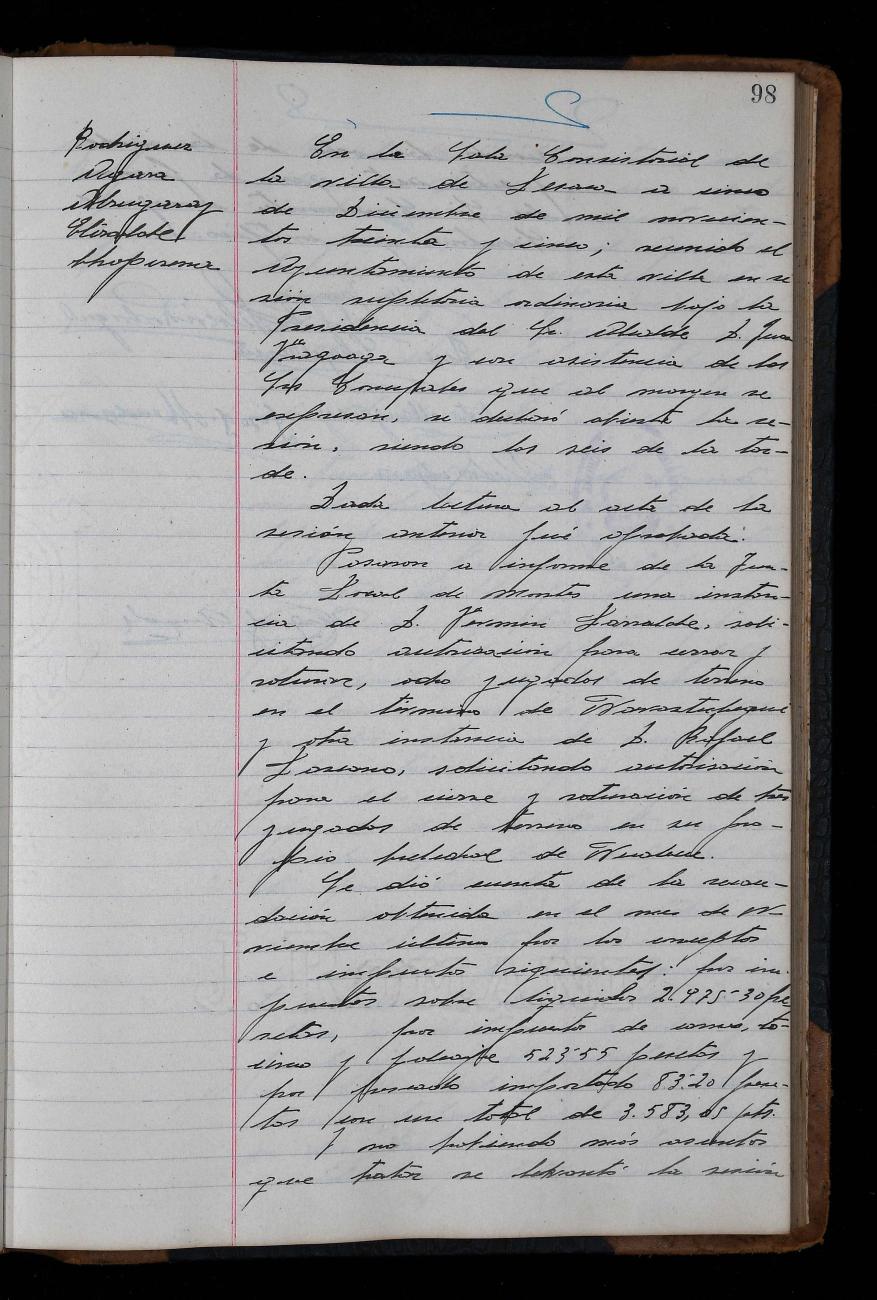 98
Rodriguez
Agara
Abrugaray
Elizalde
En la Sala Consistorial de
la villa de Lesaca a cinco
de Diciembre de mil novecien-
tos treinta y cinco; reunido el
Ayuntamiento de esta villa en se
sión supletoria ordinaria bajo la
Presidencia del Sr. Alcalde D. Juan
y con asistencia de los
Srs Concejales que al margen se
expresan, se declaró abierta la se-
sión, siendo las seis de la tar-
de.
Dada lectura al acta de la
sesión anterior fué aprobada.
Pasaron a informe de la Jun-
ta Local de Montes una instan-
cia de D. Fermin Larralde, soli-
citando autorización para cerrar y
roturar, ocho yugadas de terreno
en el término de
y otra instancia de D. Rafael
Lascano, solicitando autorización
para el cierre y roturación de tres
yugadas de terreno en su pro-
pio helechal de
Se dió cuenta de la recau-
dación obtenida en el mes de No-
viembre último por los conceptos
e impuestos siguientes: por im-
puestos sobre líquidos 2.975-30 pe
setas, por impuesto de carnes, to-
cino y 523'55 pesetas y
por pescado importado 83'20 pese-
tas con un total de 3.583,05 pts.
Y no habiendo más asuntos
que tratar se lebantó la sesión